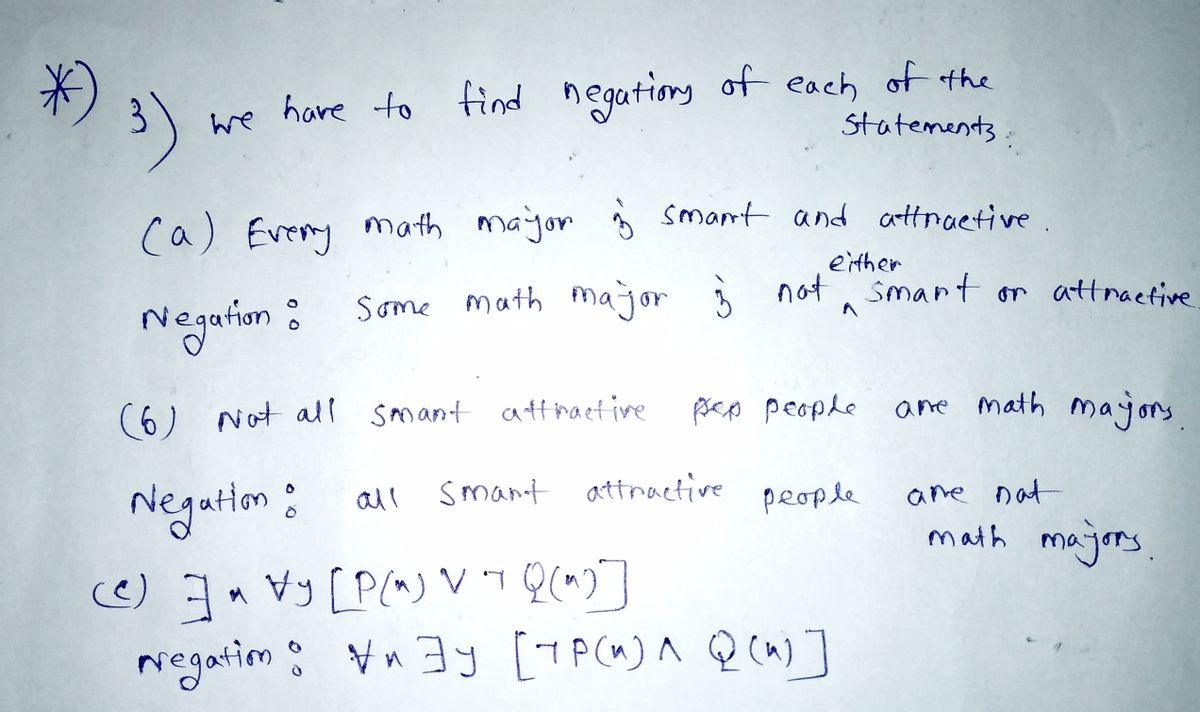 *) 3) we have to find negations of each of the
statements.
(a) Every math major is smart and attractive.
either
Negation: Some math major is not ^ smart or attractive.
(b) Not all smart attractive people are math majors.
Negation: all smart attractive people are not
math majors.
(c) ∃x ∀y [P(x) ∨ ¬ Q(x)]
Negation: ∀x ∃y [¬P(x) ∧ Q(x)]